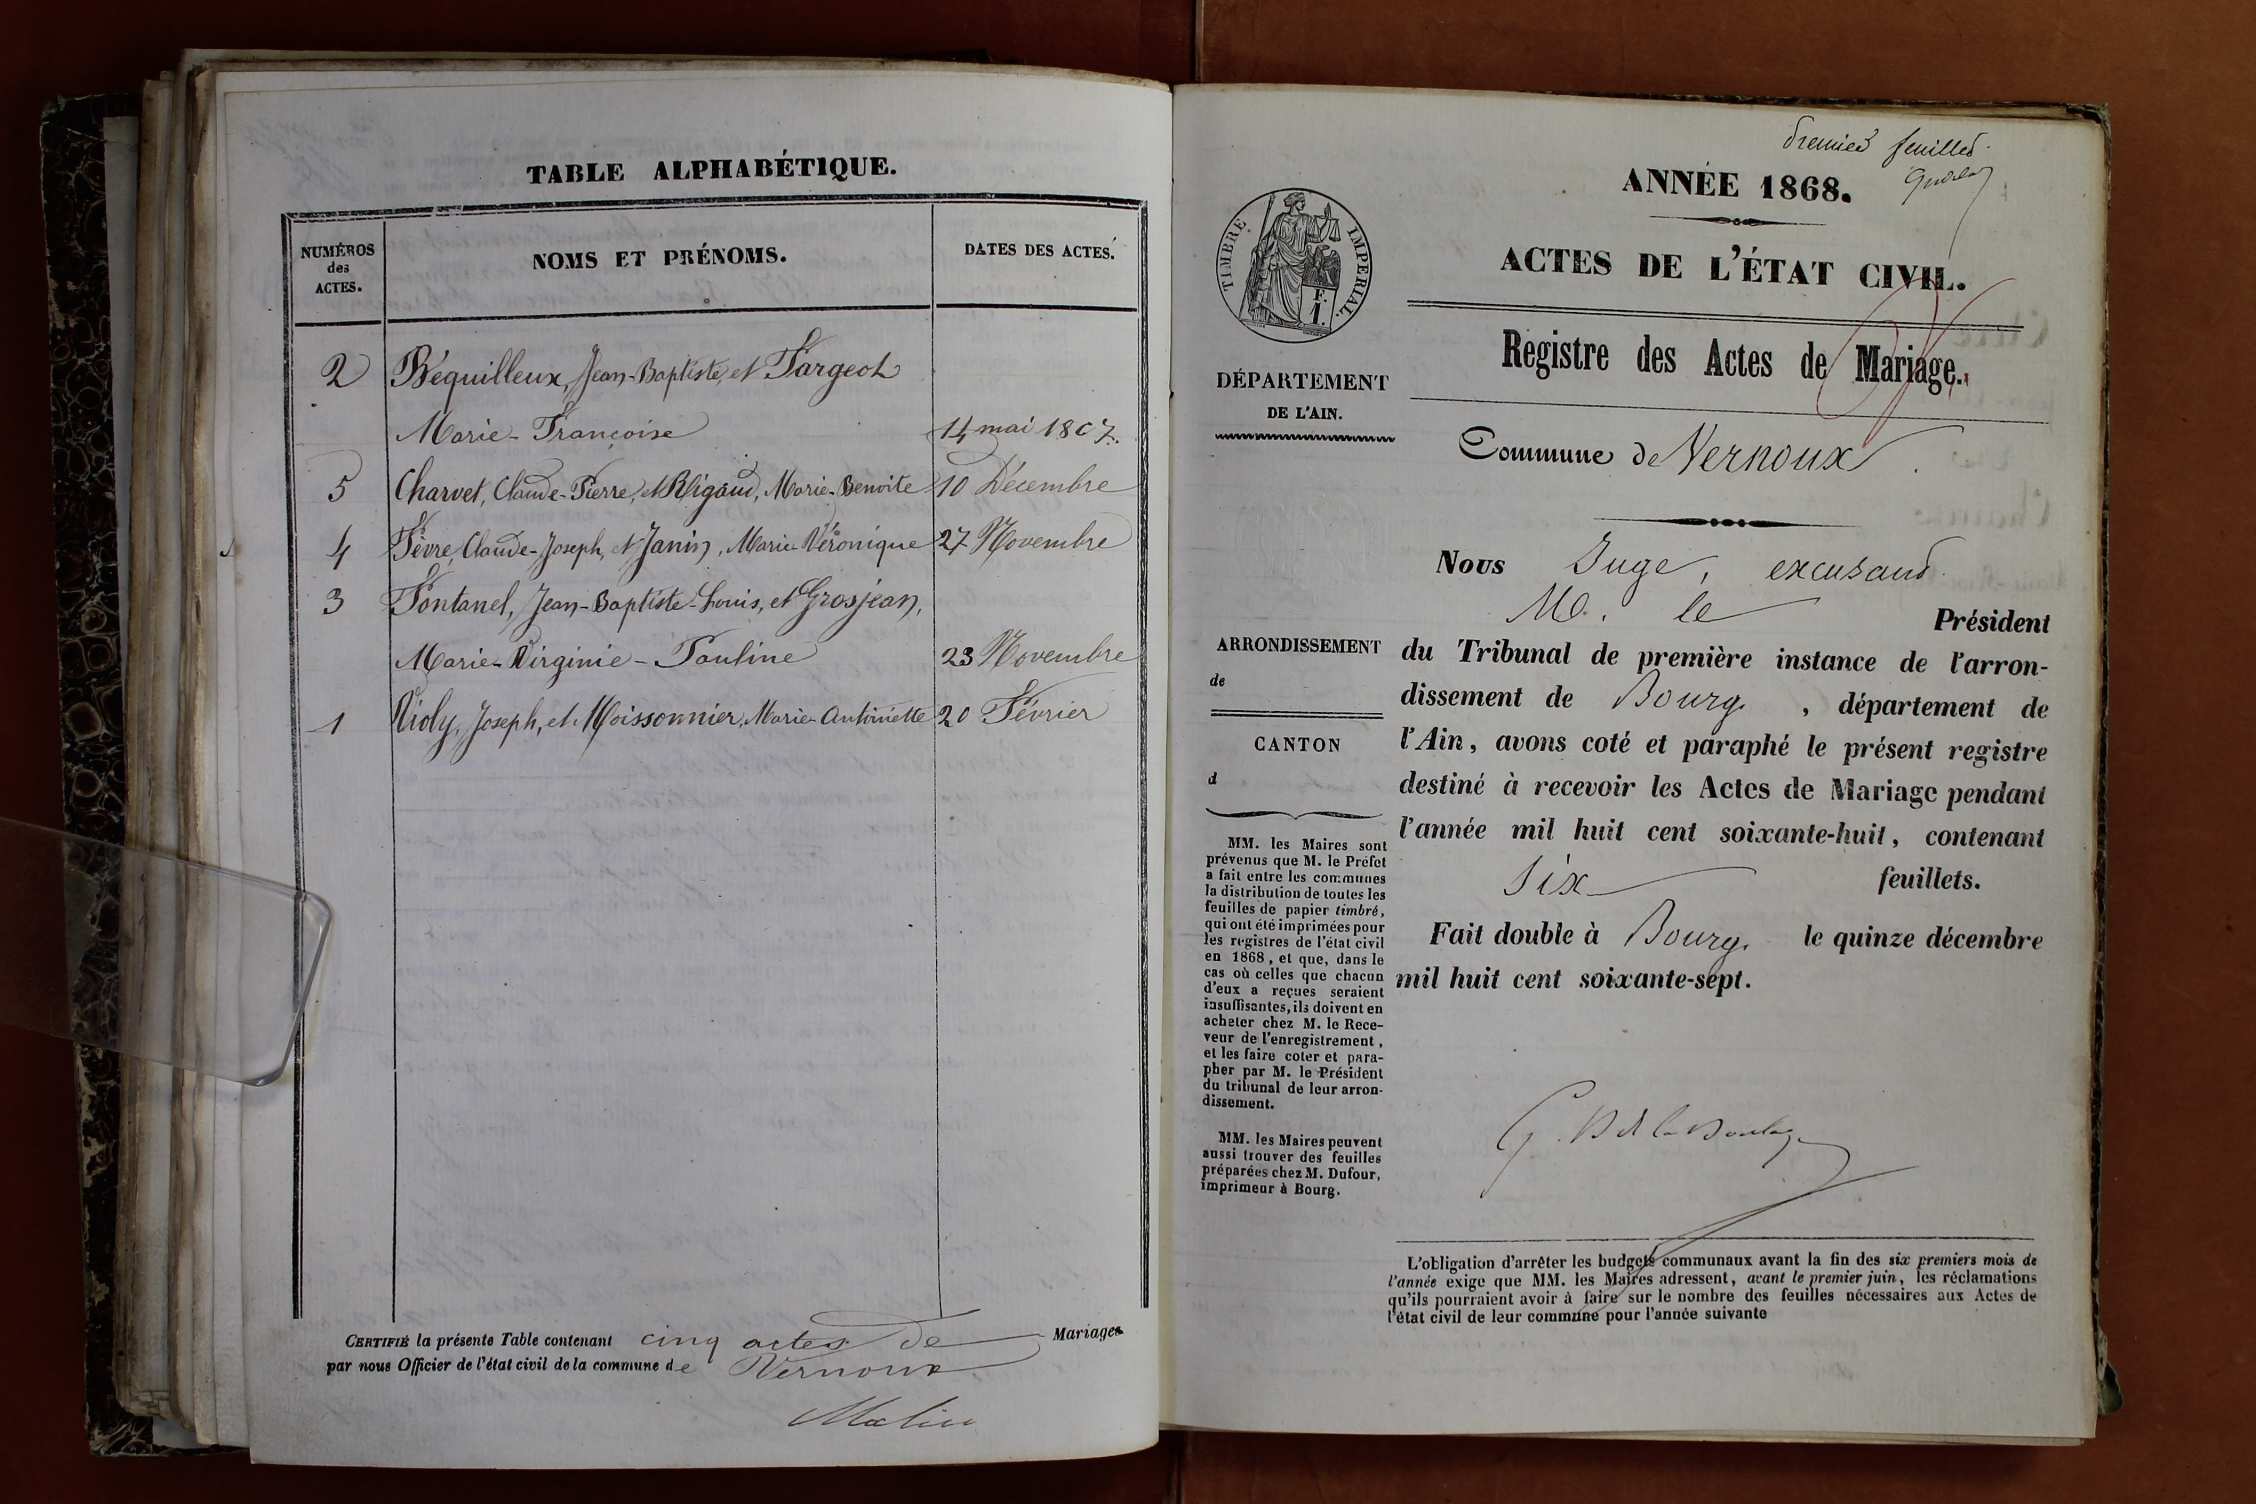 TABLE ALPHABÉTIQUE.
NUMÉROS
des
ACTES.
NOMS ET PRÉNOMS.
DATES DES ACTES.
2 Béquilleux, Jean-Baptiste, et Fargeot
Marie-Françoise 14 mai 1867.
5 Charvet, Claude-Pierre, et Rigaud, Marie-Benoite 10 Décembre
4 Fèvre, Claude-Joseph, et Janin, Marie-Véronique 27 Novembre
3 Fontanel, Jean-Baptiste-Louis, et Grosjean,
Marie-Virginie-Pauline 23 Novembre
1 Violy, Joseph, et Moissonnier, Marie-Antoinette 20 Février
CERTIFIÉ la présente Table contenant cinq actes de Mariages
par nous Officier de l'état civil de la commune de Vernoux
premier feuillet
ANNÉE 1868.
ACTES DE L'ÉTAT CIVIL.
Registre des Actes de Mariage.
TIMBRE IMPERIAL.
F.
1.
DÉPARTEMENT
DE L'AIN.
Commune de Vernoux
Nous Juge, excusant
M. le Président
du Tribunal de première instance de l'arron-
dissement de Bourg, département de
l'Ain, avons coté et paraphé le présent registre
destiné à recevoir les Actes de Mariage pendant
l'année mil huit cent soixante-huit, contenant
six feuillets.
Fait double à Bourg, le quinze décembre
mil huit cent soixante-sept.
ARRONDISSEMENT
de
CANTON
d
MM. les Maires sont
prévenus que M. le Préfet
a fait entre les communes
la distribution de toutes les
feuilles de papier timbré,
qui ont été imprimées pour
les registres de l'état civil
en 1868, et que, dans le
cas où celles que chacun
d'eux a reçues seraient
insuffisantes, ils doivent en
acheter chez M. le Rece-
veur de l'enregistrement,
et les faire coter et para-
pher par M. le Président
du tribunal de leur arron-
dissement.
MM. les Maires peuvent
aussi trouver des feuilles
préparées chez M. Dufour,
imprimeur à Bourg.
L'obligation d'arrêter les budgets communaux avant la fin des six premiers mois de
l'année exige que MM. les Maires adressent, avant le premier juin, les réclamations
qu'ils pourraient avoir à faire sur le nombre des feuilles nécessaires aux Actes de
l'état civil de leur commune pour l'année suivante